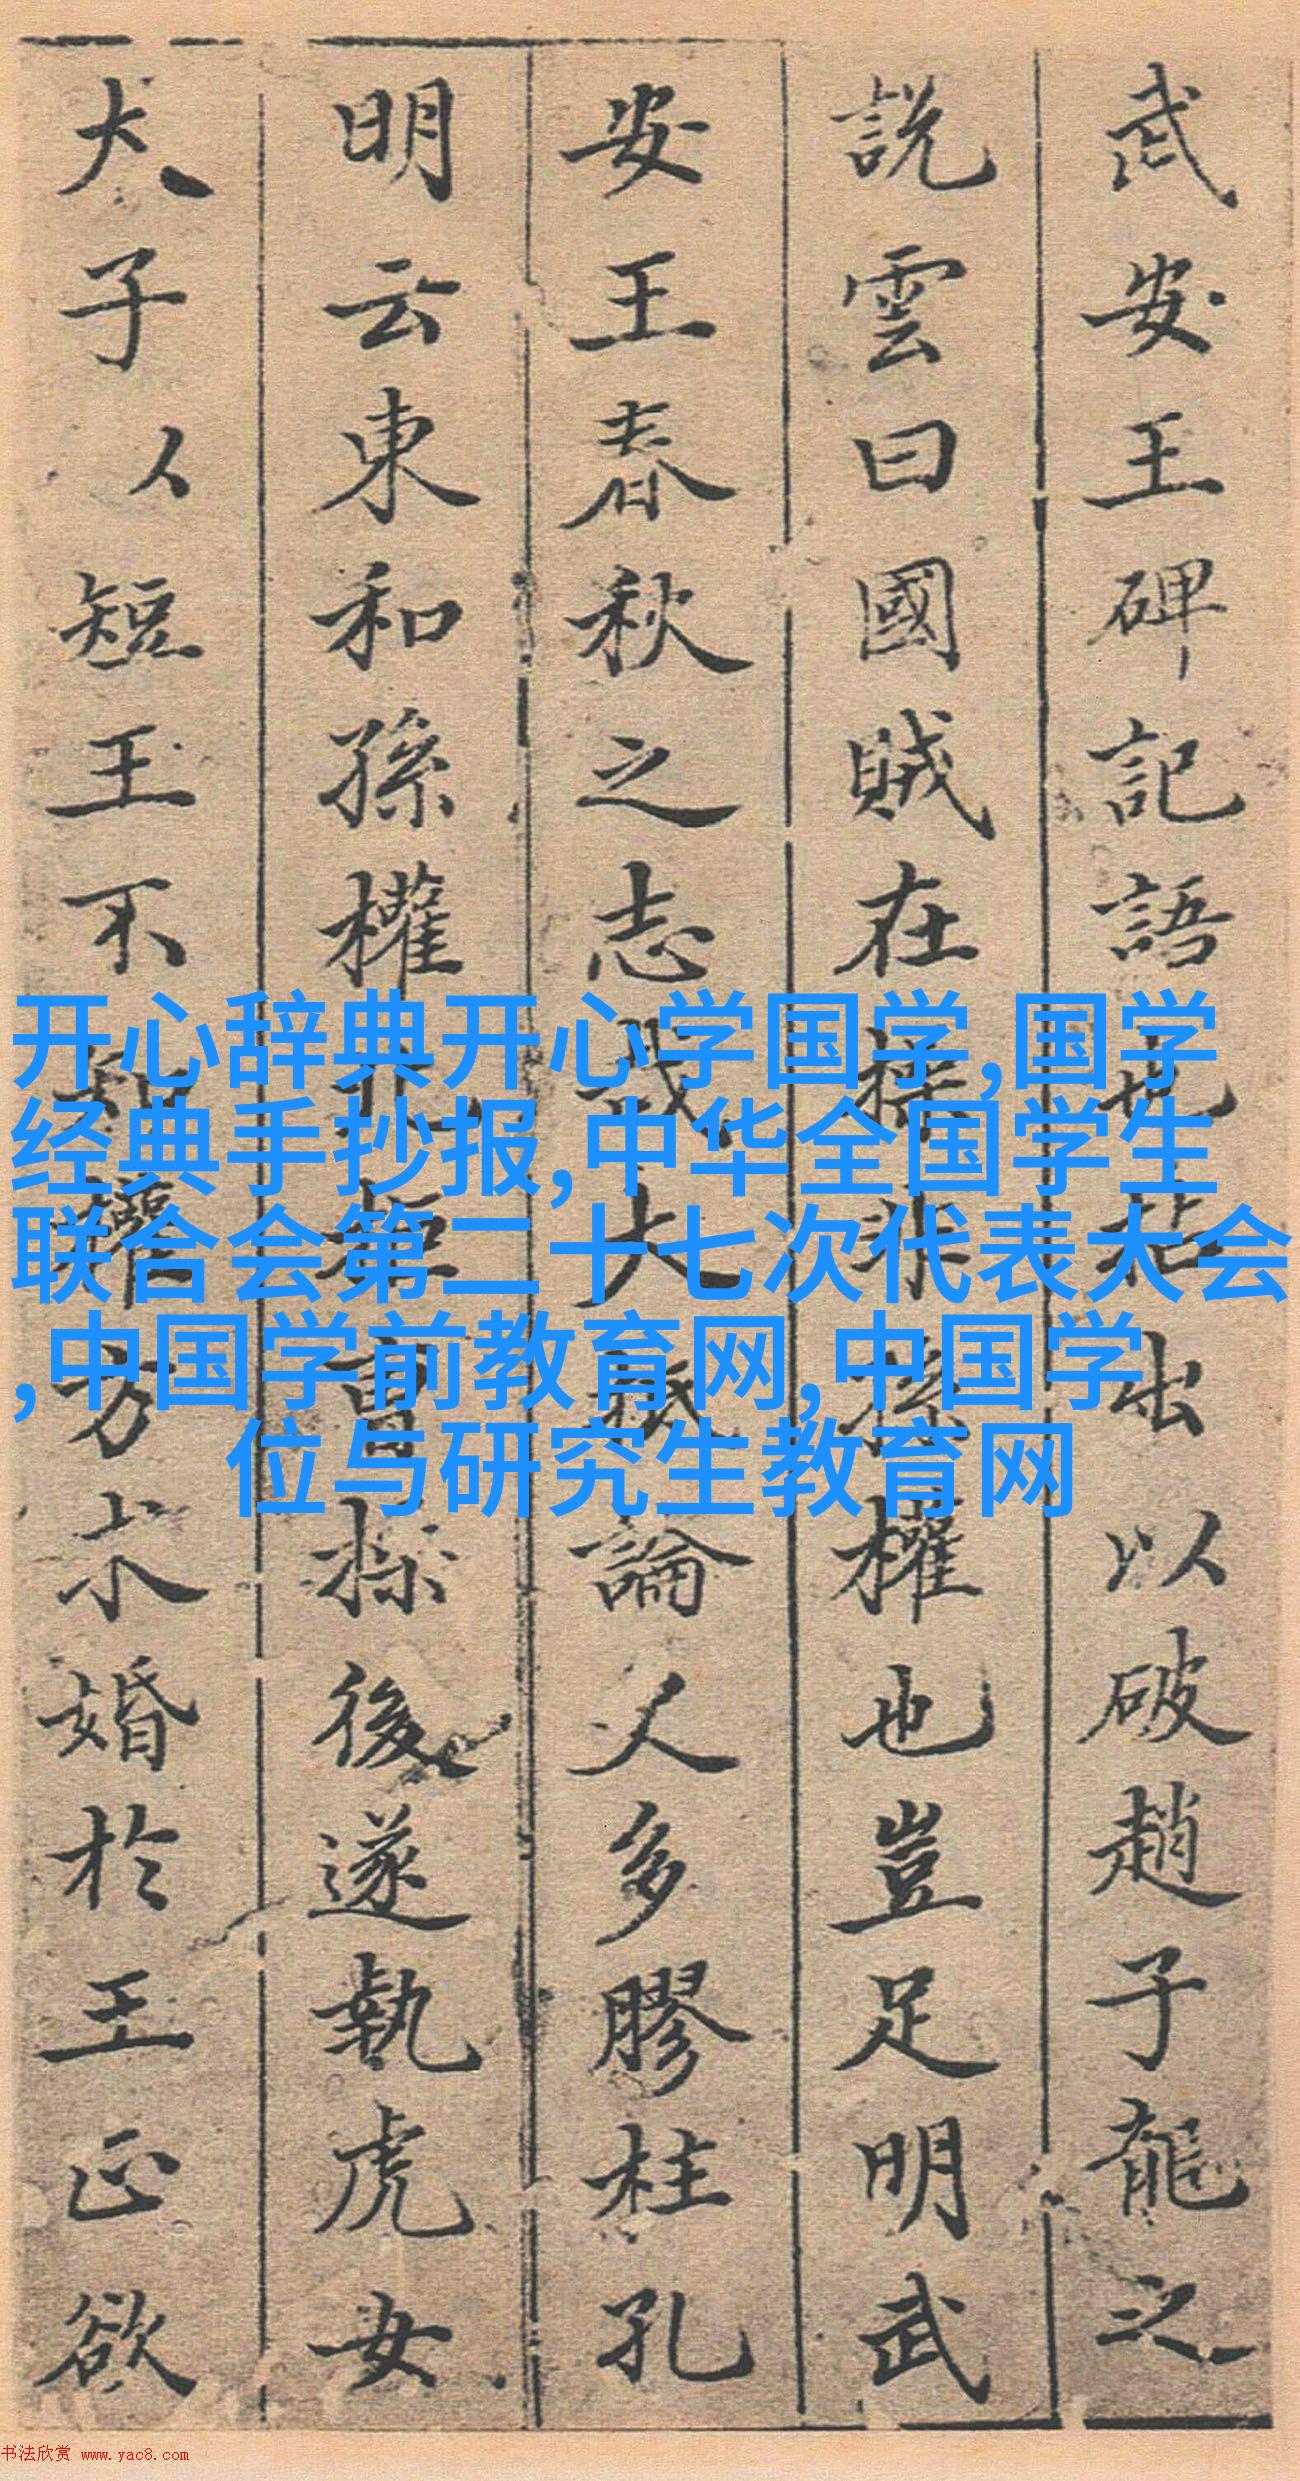 武安王碑記語也拈出以破趙子龍之
說雲曰國賊在操非孫權也豈足明武
安王春秋之志哉大抵論人多膠柱孔
明云東和孫權北拒曹操後遂執虎女
犬子以短王不知權方求婚於王正欲
开心辞典开心学国学,国学
经典手抄报,中华全国学生
联合会第二十七次代表大会
,中国学前教育网,中国学
位与研究生教育网
书法欣赏 www.yac8.com